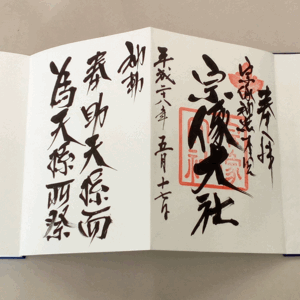 奉拝
宗像大社
平成二八年五月十七日
神勅
奉助天孫而
為天孫所祭